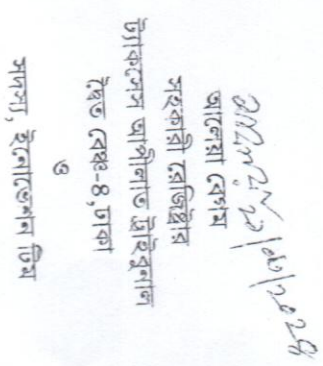 আলেয়া বেগম
সহকারী রেজিষ্ট্রার
ট্যাকসেস আপীলাত ট্রাইবুনাল
দ্বৈত বেঞ্চ-৪, ঢাকা
ও
সদস্য, ইনোভেশন টিম